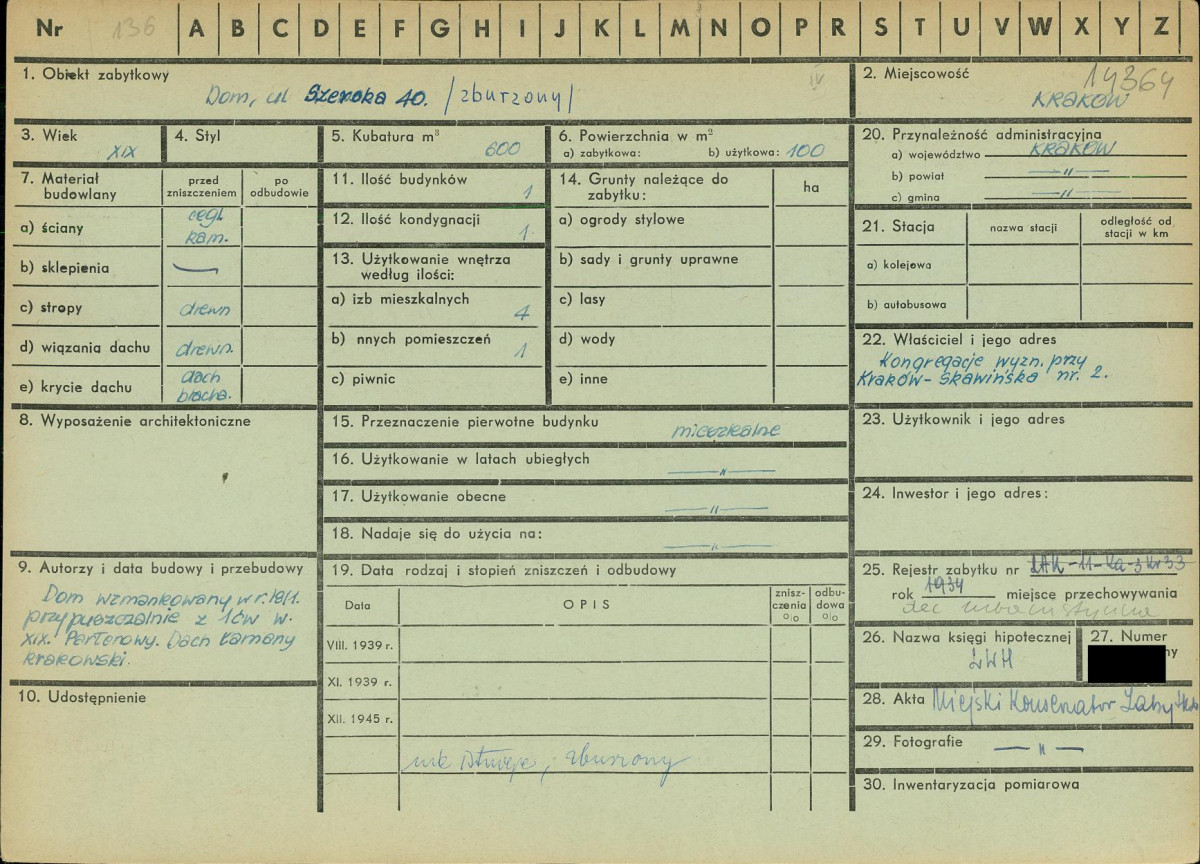 Nr 136 A B C D E F G H I J K L M N O P R S T U V W X Y Z
1. Obiekt zabytkowy
Dom, ul Szeroka 40. /zburzony/
IV
2. Miejscowość
14364
KRAKÓW
3. Wiek
XIX
4. Styl
5. Kubatura m³
600
6. Powierzchnia w m²
a) zabytkowa: b) użytkowa: 100
20. Przynależność administracyjna
a) województwo KRAKÓW
b) powiat —"—
c) gmina —"—
7. Materiał budowlany
przed zniszczeniem
po odbudowie
a) ściany
cegł.
kam.
b) sklepienia —
c) stropy drewn
d) wiązania dachu drewn.
e) krycie dachu
dach
blacha.
11. Ilość budynków 1
12. Ilość kondygnacji 1.
13. Użytkowanie wnętrza
według ilości:
a) izb mieszkalnych 4
b) nnych pomieszczeń 1
c) piwnic
14. Grunty należące do
zabytku:
ha
a) ogrody stylowe
b) sady i grunty uprawne
c) lasy
d) wody
e) inne
21. Stacja
nazwa stacji
odległość od
stacji w km
a) kolejowa
b) autobusowa
22. Właściciel i jego adres
Kongregacje wyzn. przy
Kraków - Skawińska nr. 2.
8. Wyposażenie architektoniczne
15. Przeznaczenie pierwotne budynku
mieszkalne
16. Użytkowanie w latach ubiegłych
—"—
17. Użytkowanie obecne
—"—
18. Nadaje się do użycia na:
—"—
23. Użytkownik i jego adres
24. Inwestor i jego adres:
9. Autorzy i data budowy i przebudowy
Dom wzmankowany w r.
przypuszczalnie z w.
XIX. Parterowy. Dach łamany
krakowski.
10. Udostępnienie
19. Data rodzaj i stopień zniszczeń i odbudowy
Data
OPIS
znisz-
czenia
%
odbu-
dowa
%
VIII. 1939 r.
XI. 1939 r.
XII. 1945 r.
nie istnieje, zburzony
25. Rejestr zabytku nr
rok 1934 miejsce przechowywania
26. Nazwa księgi hipotecznej
LWH
27. Numer
ny
28. Akta Miejski Konserwator
29. Fotografie —"—
30. Inwentaryzacja pomiarowa